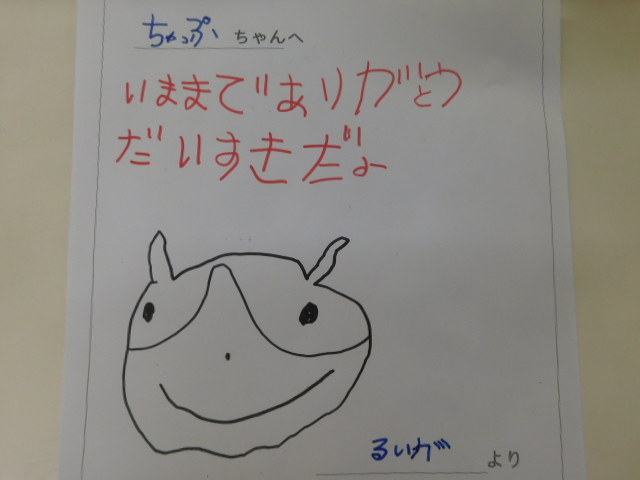 ちゃっぷ ちゃんへ
いままでありがとう
だいすきだよー
るいが より